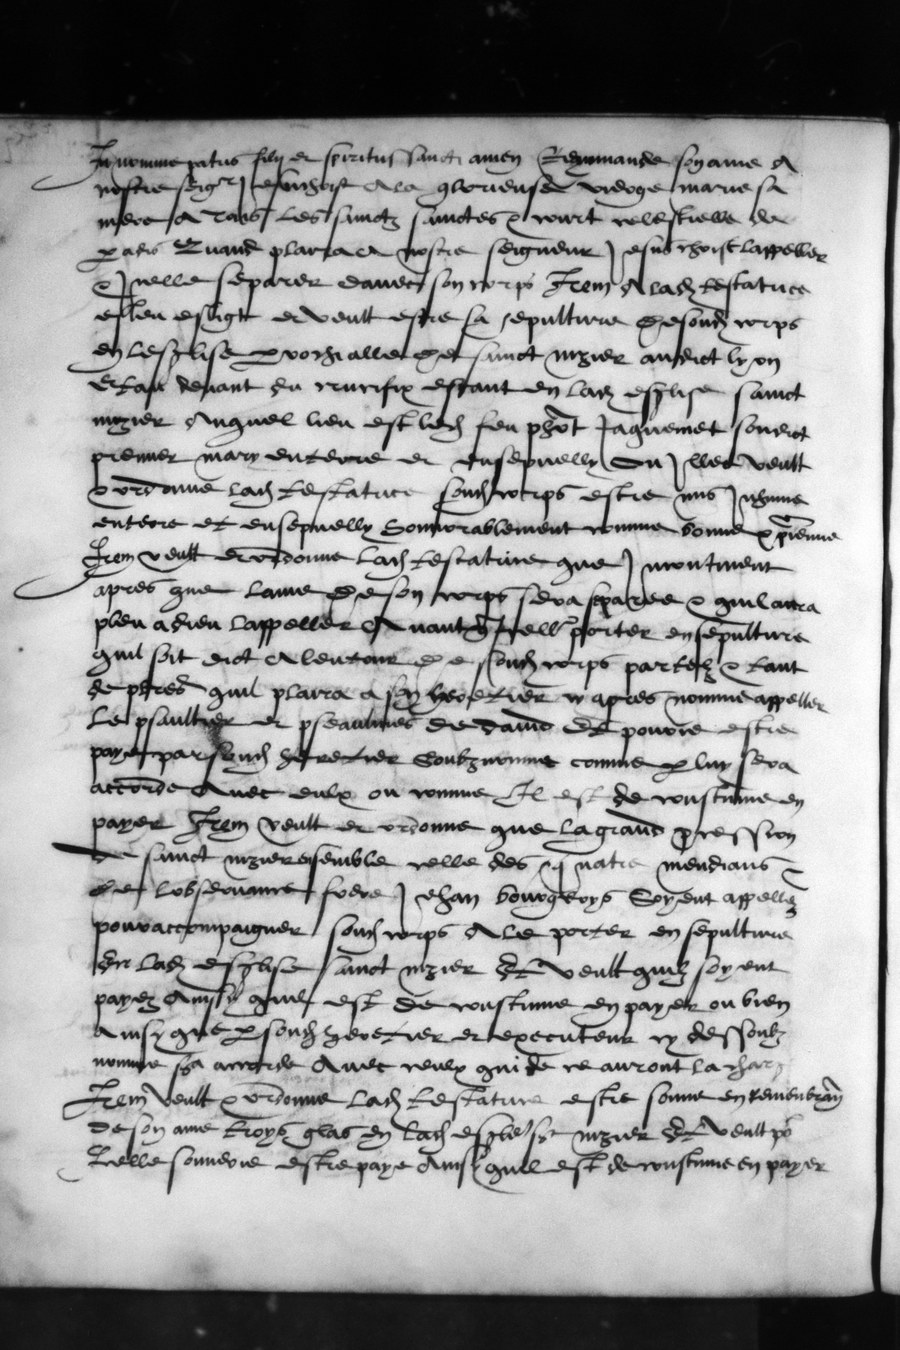 In nomine patris filii et spiritus sancti amen Recommande son ame a
nostre seigr Jesuchrist a la glorieuse vierge marie sa
mere a tous les sainctz sainctes & court celestielle de
paradis Quand plaira a nostre seigneur Jesus christ lappeller
& Icelle separer davec son corps Item a lad testatrice
esleu esligt et veult estre sa sepulture de sond corps
en lesglise parrochialle de sainct nizier audict lyon
et au devant du crucifix estant en lad esglise sainct
nizier Auquel lieu est led feu phot Jaquemet sondict
premier mary enterre et ensepuelly Ou Illec veult
& ordonne lad testatrice sond corps estre mis Inhume
enterre et ensepuelly honnorablement comme bonne xpienne
Item veult et ordonne lad testatrice que Incontinent
apres que lame de son corps sera separee & quil aura
pleu a dieu lappeller Avant Icelluy porter en sepulture
quil soit dict a lentour de sond corps par telz & tant
de pbres quil plaira a son heretier cy apres nomme appeller
le psaultier et pseaulmes de david Et pouvre estre
paye par sond heretier soubznomme comme par luy sera
accorde Avec eulx ou comme Il est de coustume en
payer Item veult et ordonne que la grand procession
de sainct nizier ensemble celle des quatre mendians &
de lobservance frere Jehan bourgeoys soyent appellez
pour accompaigner sond corps a le porter en sepulture
En lad esglise sainct nizier Et veult quilz soyent
payez Ainsy quil est de coustume en payer ou bien
Ainsy que par sond heretier et executeur cy dessoubz
nomme sera accorde Avec ceulx qui de ce auront la charge
Item veult & ordonne lad testatrice estre sonne en remembrance
de son ame troys glas en lad esglise st nizier Et veult por
Icelle sonnerie estre paye Ainsy quil est de coustume en payer